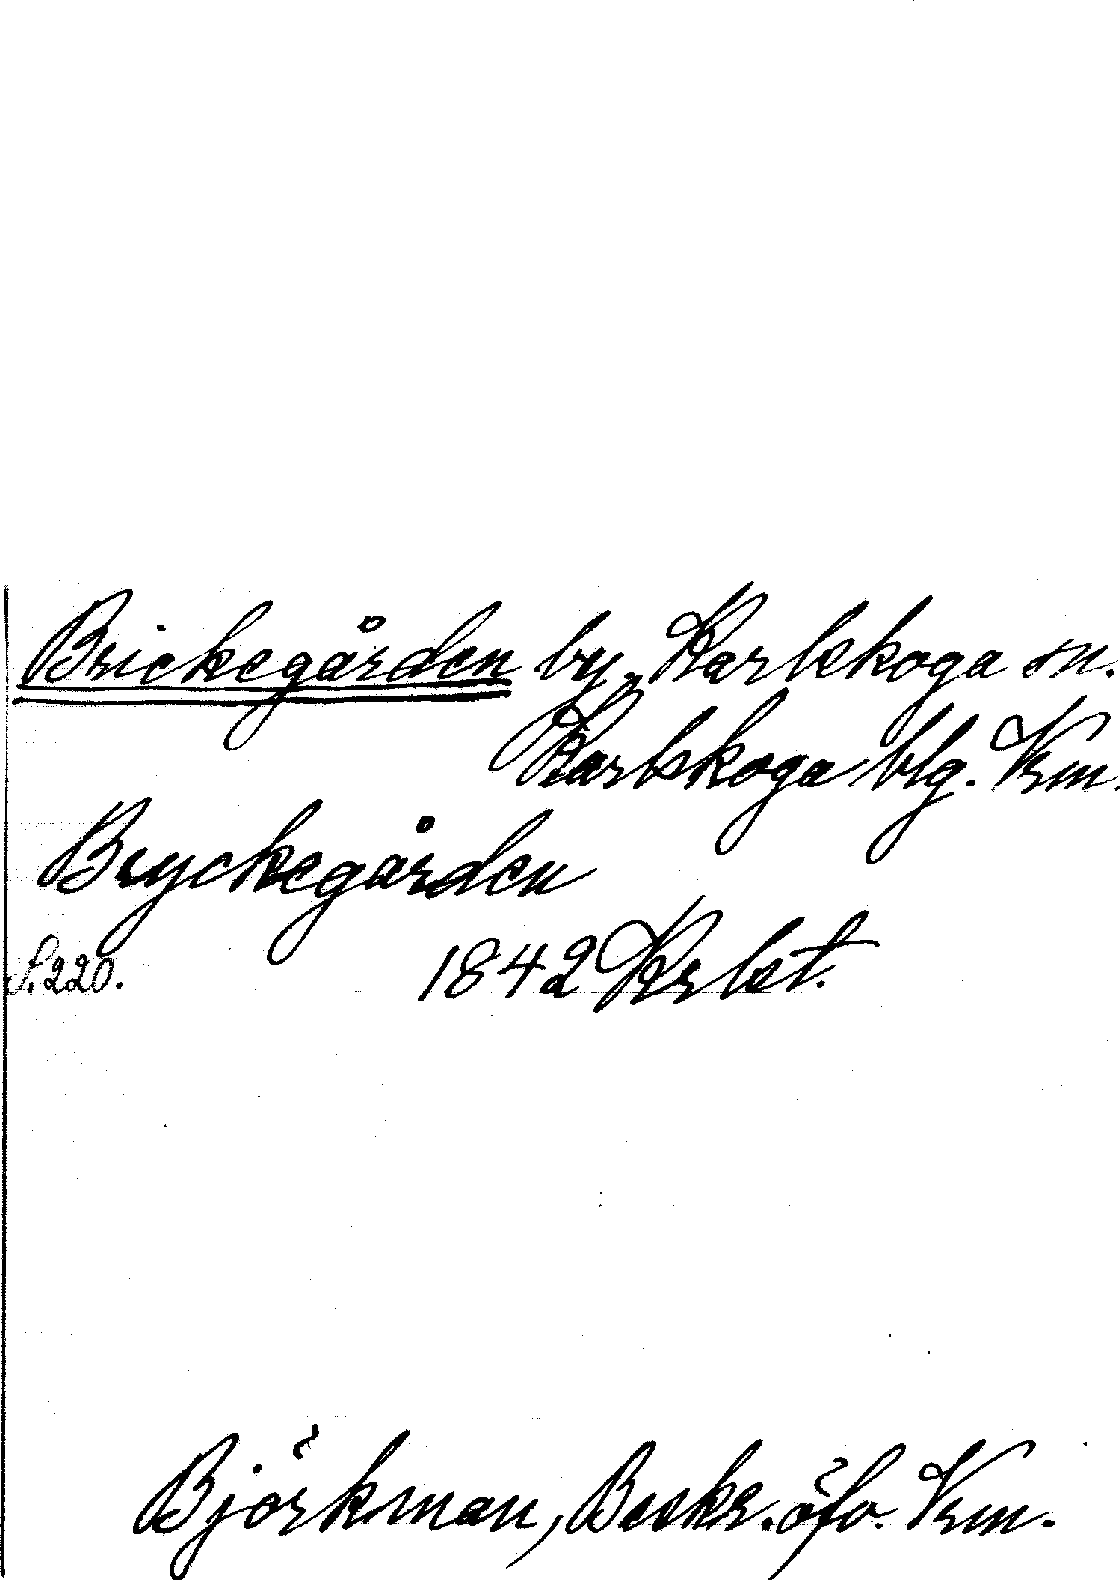 Brickegården by, Karlskoga sn.
Karlskoga blg. Vrm.
Bryckegården
S. 220. 1842 Krlst.
Björkman, Beskr. öfv. Vrm.